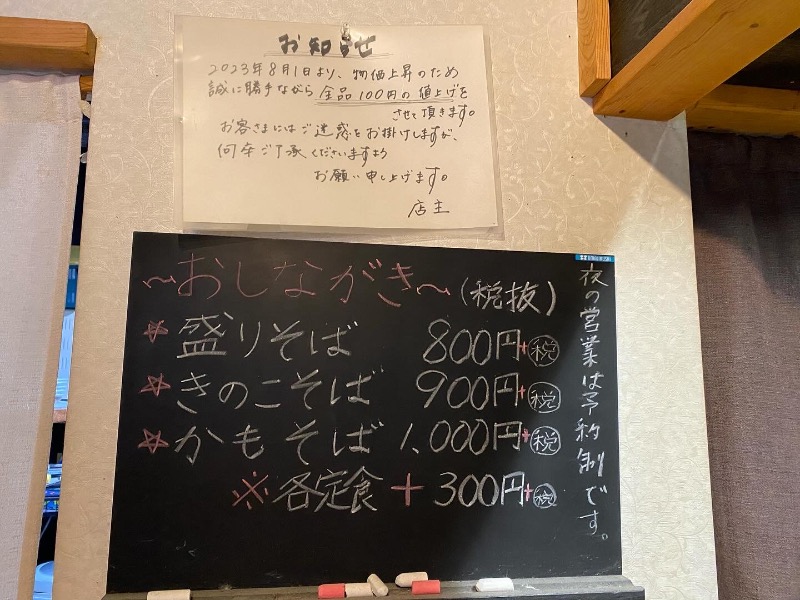 お知らせ
2023年8月1日より、物価上昇のため
誠に勝手ながら全品100円の値上げを
させて頂きます。
お客さまにはご迷惑をお掛けしますが、
何卒ご了承くださいますよう
お願い申し上げます。
店主
~おしながき~(税抜)
☆盛りそば 800円+税
☆きのこそば 900円+税
☆かもそば 1,000円+税
※各定食+300円+税
夜の営業は予約制です。